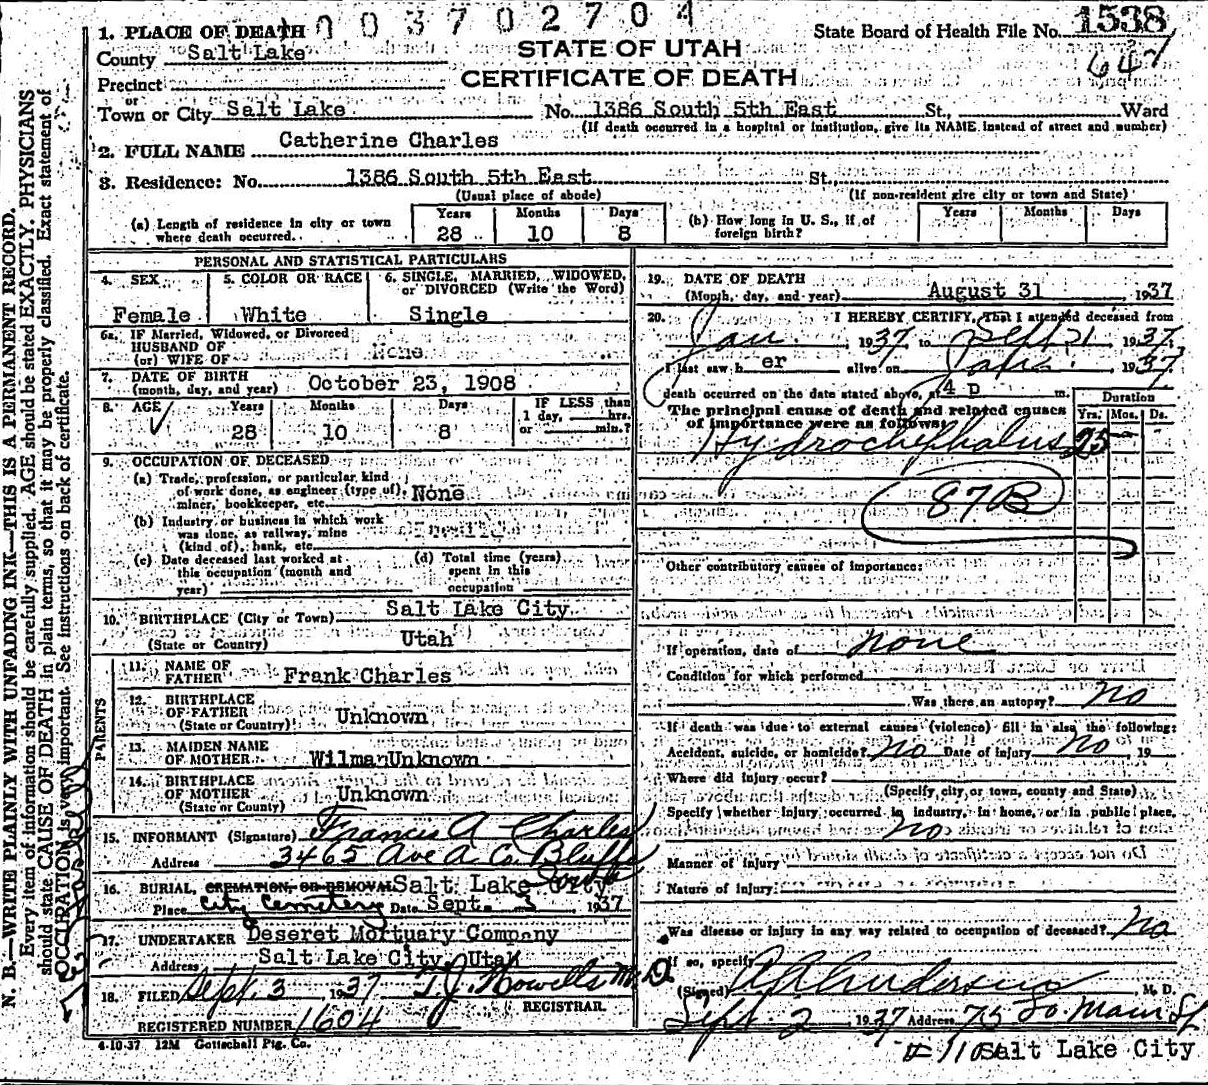 003702704
1. PLACE OF DEATH
State Board of Health File No. 1538
647
County Salt Lake
STATE OF UTAH
CERTIFICATE OF DEATH
Precinct
or
Town or City Salt Lake No. 1386 South 5th East St., Ward
(If death occurred in a hospital or institution, give its NAME instead of street and number)
2. FULL NAME Catherine Charles
3. Residence: No. 1386 South 5th East St.
(Usual place of abode) (If non-resident give city or town and State)
(a) Length of residence in city or town where death occurred. Years 28 Months 10 Days 8
(b) How long in U. S., if of foreign birth? Years Months Days
PERSONAL AND STATISTICAL PARTICULARS
4. SEX Female
5. COLOR OR RACE White
6. SINGLE, MARRIED, WIDOWED, or DIVORCED (Write the Word) Single
6a. IF Married, Widowed, or Divorced
HUSBAND OF
(or) WIFE OF None
7. DATE OF BIRTH
(month, day, and year) October 23, 1908
8. AGE Years 28 Months 10 Days 8
IF LESS than
1 day, hrs.
or min.?
9. OCCUPATION OF DECEASED
(a) Trade, profession, or particular kind
of work done, as engineer (type of),
miner, bookkeeper, etc. None
(b) Industry or business in which work
was done, as railway, mine
(kind of), bank, etc.
(c) Date deceased last worked at
this occupation (month and
year)
(d) Total time (years)
spent in this
occupation
10. BIRTHPLACE (City or Town) Salt Lake City
(State or Country) Utah
PARENTS
11. NAME OF
FATHER Frank Charles
12. BIRTHPLACE
OF FATHER
(State or Country) Unknown
13. MAIDEN NAME
OF MOTHER Wilma Unknown
14. BIRTHPLACE
OF MOTHER
(State or County) Unknown
15. INFORMANT (Signature) Francis A Charles
Address 3465 Ave A Co. Bluffs
16. BURIAL, CREMATION, OR REMOVAL Salt Lake City
Place City Cemetery Date Sept. 3 1937
17. UNDERTAKER Deseret Mortuary Company
Address Salt Lake City, Utah
18. FILED Sept. 3 1937 T. J. Howells M.D.
REGISTRAR.
REGISTERED NUMBER 1604
4-10-37 12M Gottschall Ptg. Co.
19. DATE OF DEATH
(Month, day, and year) August 31 1937
20. I HEREBY CERTIFY, That I attended deceased from
Jan 1937, to 1937
I last saw h er alive on 1937
death occurred on the date stated above, at 4 p m.
The principal cause of death and related causes
of importance were as follows:
Duration
Yrs. Mos. Ds.
Hydrochephalus 25
87B
Other contributory causes of importance:
If operation, date of none
Condition for which performed
Was there an autopsy? no
If death was due to external causes (violence) fill in also the following:
Accident, suicide, or homicide? no Date of injury no 19
Where did injury occur?
(Specify city or town, county and State)
Specify whether injury occurred in industry, in home, or in public place.
no
Manner of injury
Nature of injury:
Was disease or injury in any way related to occupation of deceased? no
If so, specify
(Signed) M. D.
Sept. 2 1937 Address 75 So Main St
Salt Lake City
N. B.—WRITE PLAINLY WITH UNFADING INK—THIS IS A PERMANENT RECORD.
Every item of information should be carefully supplied. AGE should be stated EXACTLY. PHYSICIANS
should state CAUSE OF DEATH in plain terms, so that it may be properly classified. Exact statement of
OCCUPATION is very important. See instructions on back of certificate.